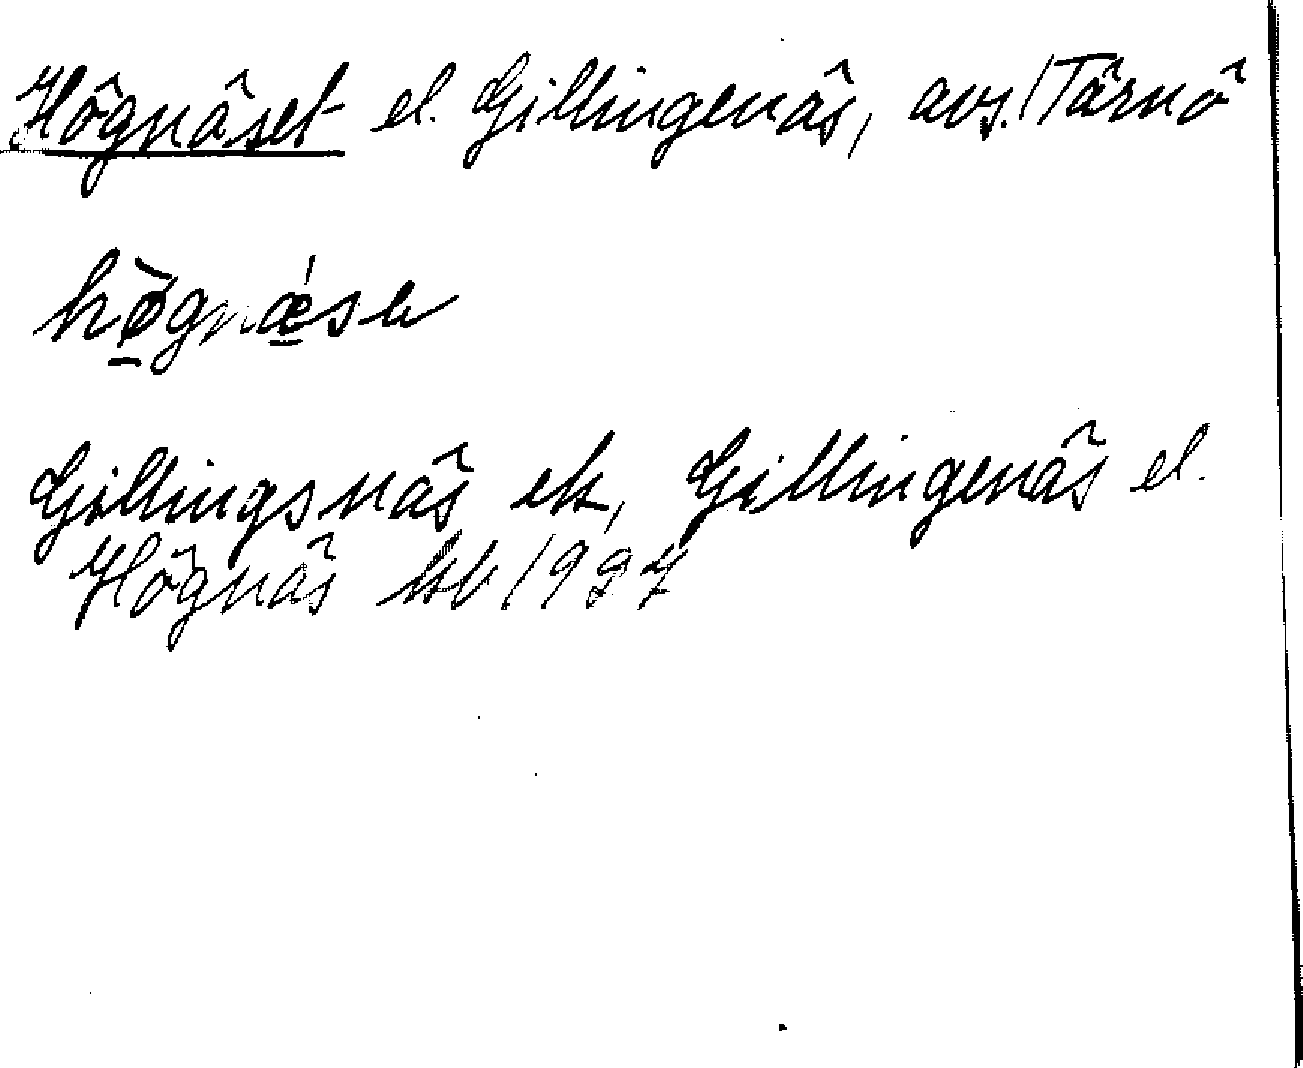 Högnäset el. Gillingenäs, avs./Tärnö
hö̀gnǽsь
Gillingsnäs ek, Gillingenäs el.
Högnäs kb 1937